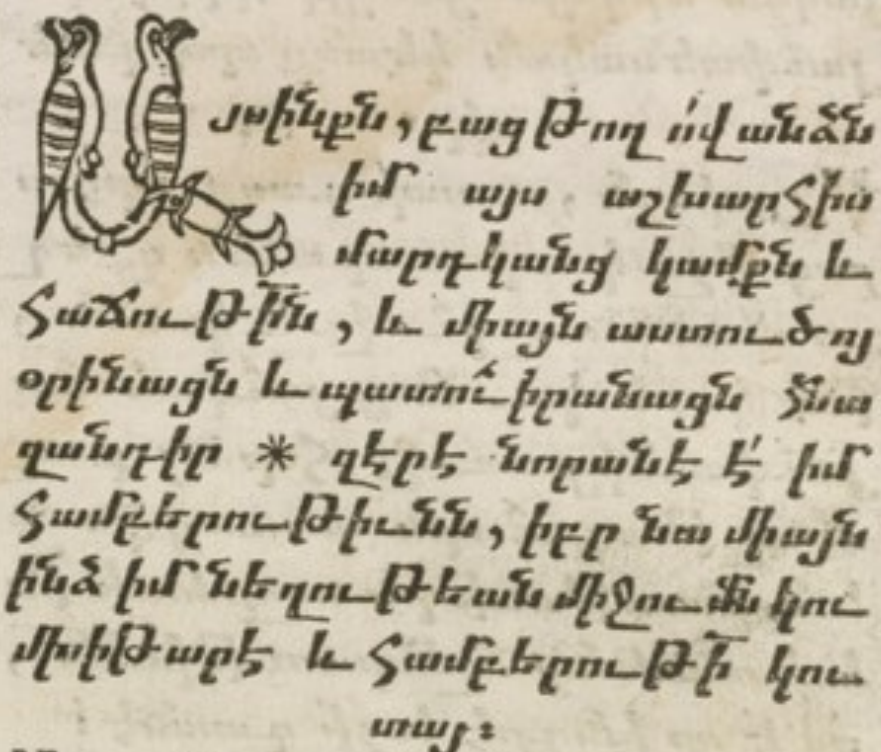 Այսինքն, բաց թող ո՛վ անձն
իմ այս աշխարհիս
մարդկանց կամքն և
հաճութի՟ն, և միայն աստուծոյ
օրինացն և պատուիրանացն հնա
զանդիր * զէրէ նորանէ է՛ իմ
համբերութիւնն, իբր նա միայն
ինձ իմ նեղութեան միջումն կու
մխիթարէ և համբերութի՟ կու
տայ։